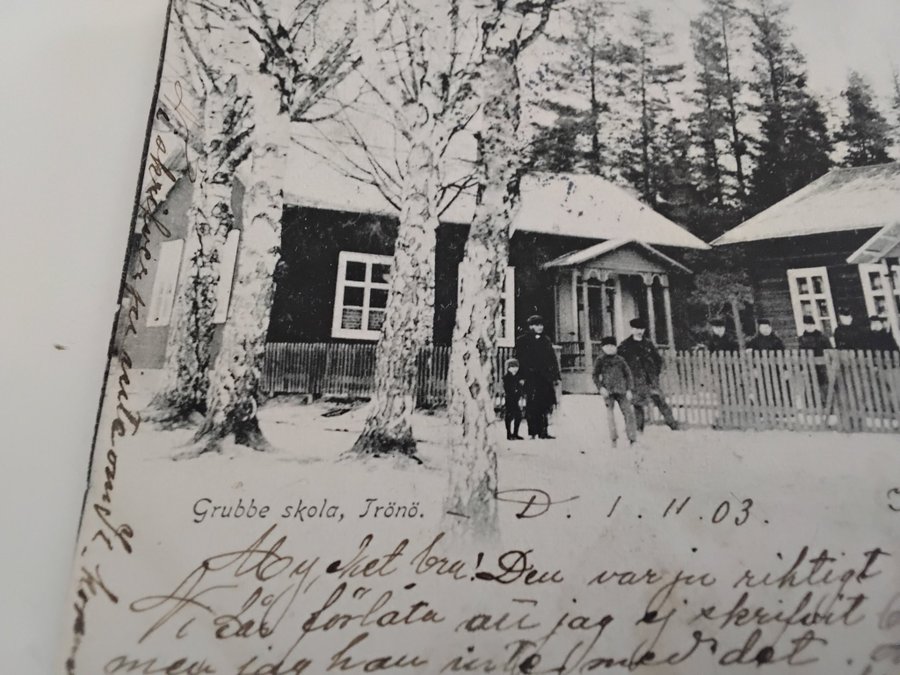 Grubbe skola, Trönö.
D. 1. 11. 03.
Mycket bra! Den var ju riktigt
Ni får förlåta att jag ej skrifvit
men jag han inte med det.
Ni skrifver